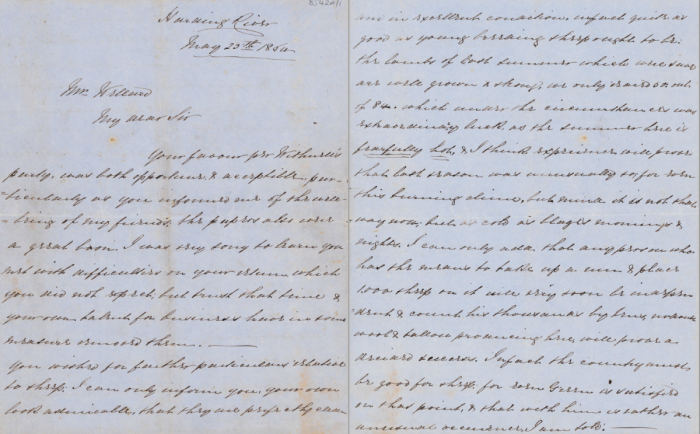 Harding River
May 23th 1864
Mr. Wellard
My dear Sir
Your favour per Withnell's
party, was both opportune & acceptible, par-
-ticularly as you informed me of the well-
-being of my friends. The papers also were
a great boon. I was very sorry to learn you
met with difficulties on your return which
you did not expect, but trust that time &
your own talent for business have in some
measure removed them. —
You wished for further particulars relative
to sheep. I can only inform you, your own
look admirable, that they are perfectly clean
am in excellent condition, infact quite as
good as young breeding sheep ought to be.
the lambs of last summer which were saved
are well grown & strong, we only reared 50 out
of 84. which under the circumstances was
extraordinary luck. as the summer here is
fearfully hot, & I think experience will prove
that last season was unusually so, for even
this burning clime, but mind it is not that
way now, but as cold as blazes mornings &
nights. I can only add, that any person who
has the means to take up a run & place
1000 sheep on it will very soon be independ-
dent & count his thousands by tens,
wool & tallow producing here, will prove a
decided success. Infact the country must
be good for sheep, for even Green is satisfied
on that point, & that with him is rather an
unusual occurrence, I am told. —